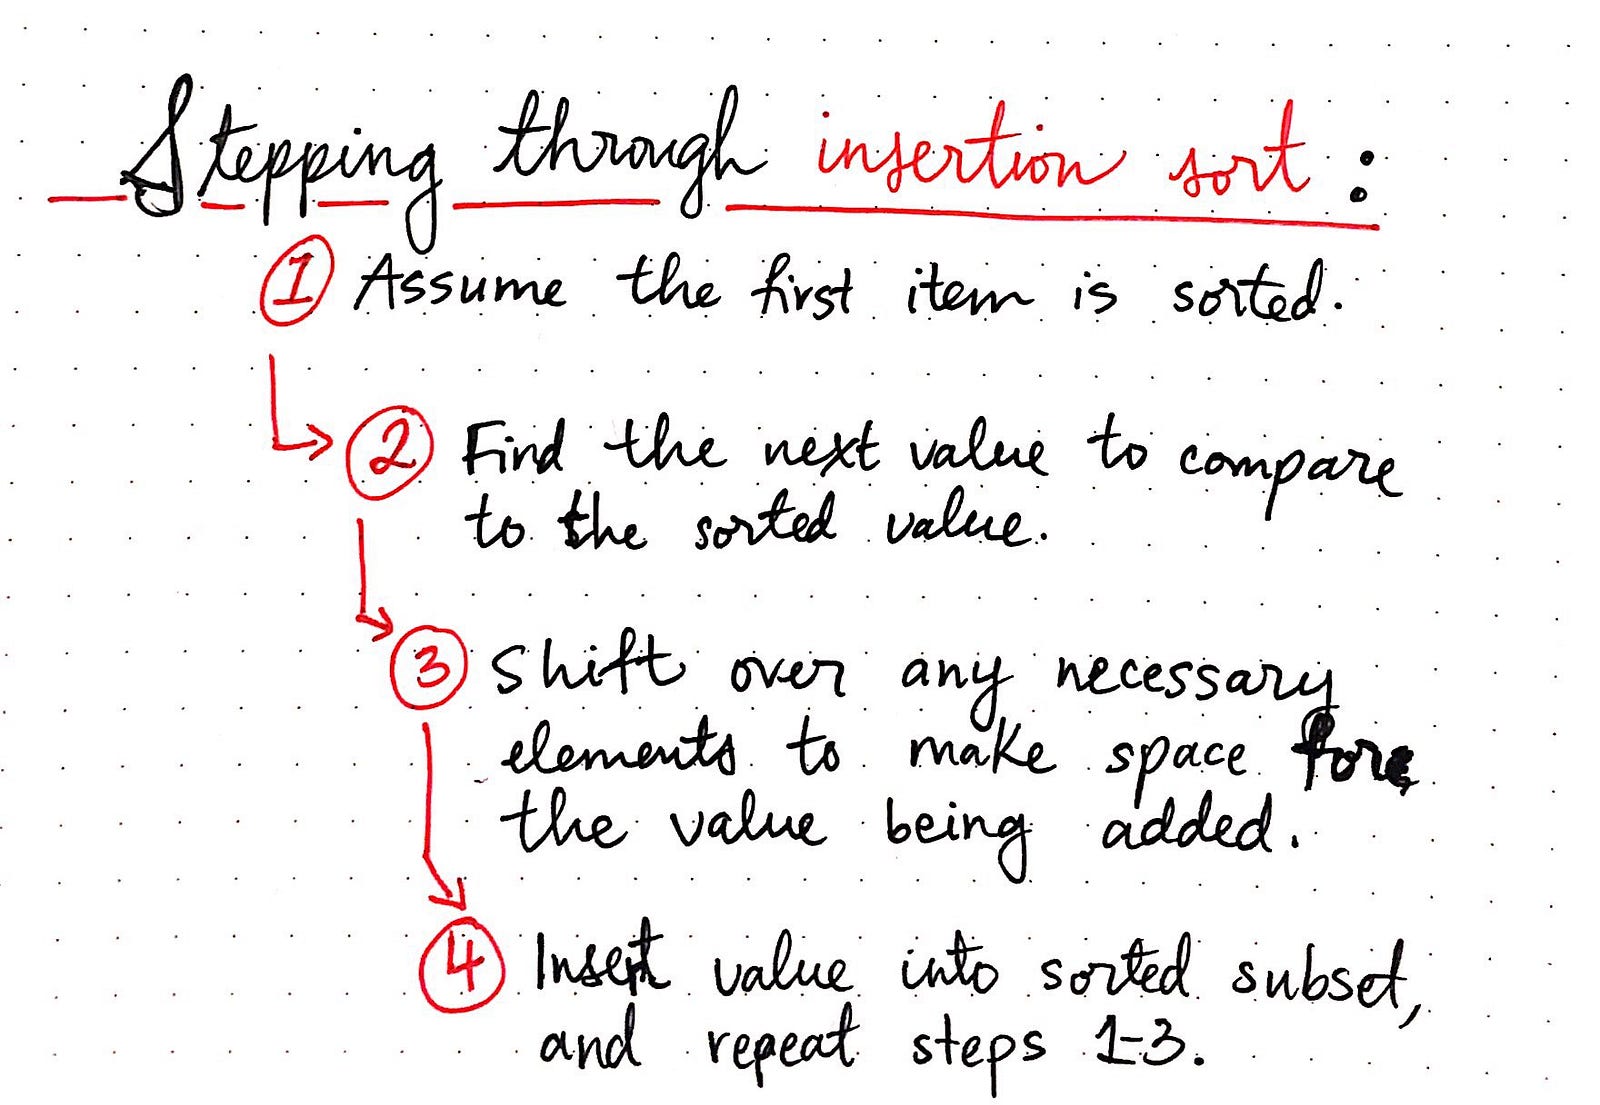 Stepping through insertion sort:
1 Assume the first item is sorted.
2 Find the next value to compare
to the sorted value.
3 Shift over any necessary
elements to make space for
the value being added.
4 Insert value into sorted subset,
and repeat steps 1-3.